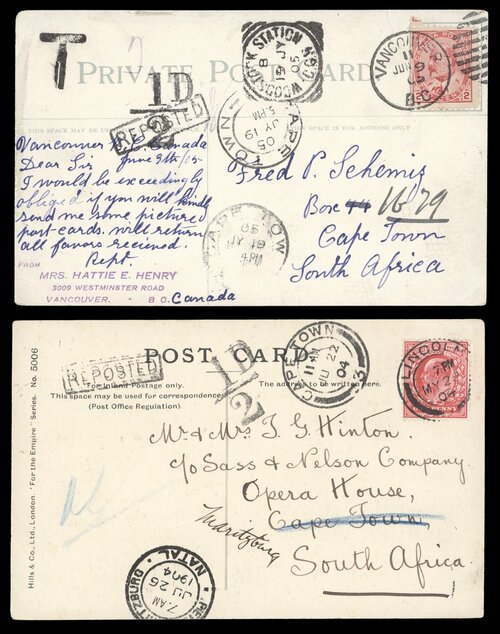 T
PRIVATE POST CARD
THIS SPACE MAY BE
THIS SPACE IS FOR ADDRESS ONLY
1D
2
REPOSTED
WOODSTOCK STATION
JY 19
05
CAPE TOWN
JY 19
05
5 PM
VANCOUVER
JUN 9
05
B.C.
Vancouver B.C. Canada
Dear Sir June 9th/05
I would be exceedingly
obliged if you will kindly
send me some pictured
post-cards. will return
all favors recieved.
Rept.
FROM
MRS. HATTIE E. HENRY
3009 WESTMINSTER ROAD
VANCOUVER, - B C. Canada
Fred P. Schemiz
Box 44 1679
Cape Town
South Africa
CAPE TOW
05
JY 19
4 PM
POST CARD.
REPOSTED
For Inland Postage only.
This space may be used for correspondence
(Post Office Regulation).
The address to be written here.
1D
2
CAPE TOWN
11 AM
JU 22
04
3
LINCOLN
7 PM
MY 2
04
PENNY
Hills & Co., Ltd., London. "For the Empire" Series. No. 5006
Mr & Mrs J. G. Hinton.
c/o Sass & Nelson Company.
Opera House,
Cape Town
Maritzburg
South Africa.
RITZBURG. NATAL
7. AM
JU 26
1904